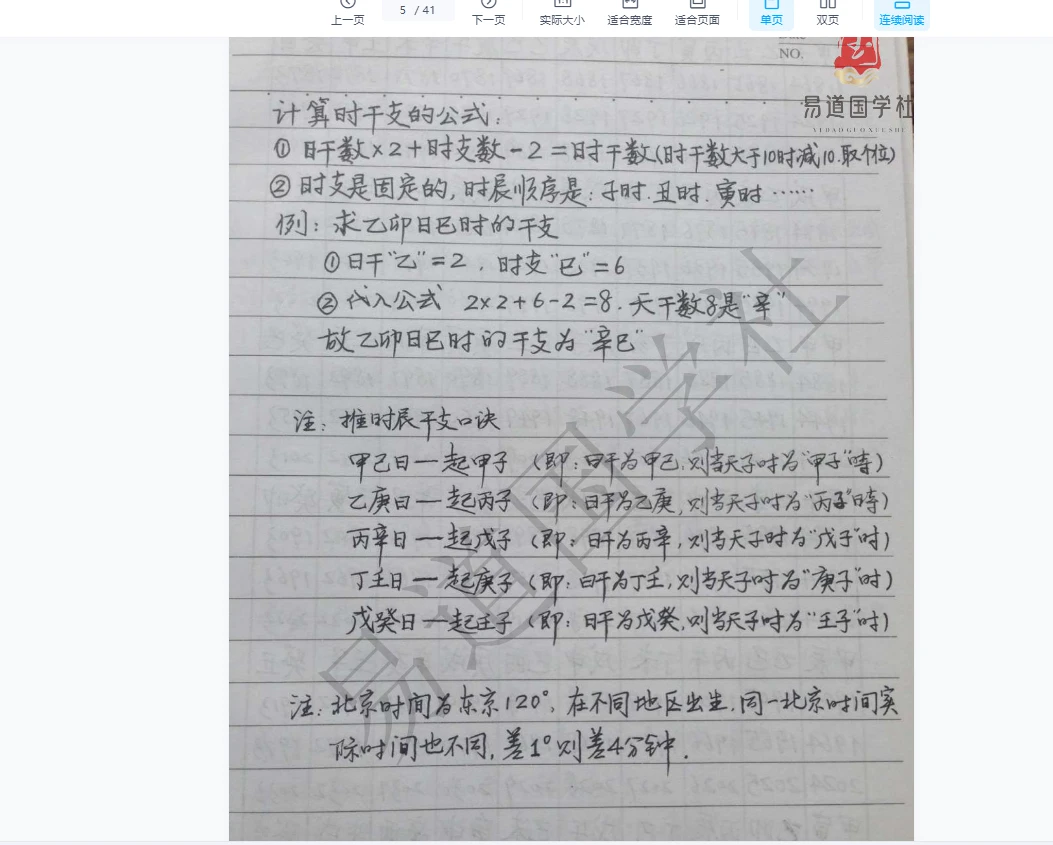 上一页
5 / 41
下一页
实际大小
适合宽度
适合页面
单页
双页
连续阅读
NO.
易道国学社
YI DAO GUO XUE SHE
计算时干支的公式:
① 日干数×2+时支数-2=时干数(时干数大于10时减10.取个位)
② 时支是固定的,时辰顺序是:子时.丑时.寅时……
例:求乙卯日巳时的干支
①日干"乙"=2,时支"巳"=6
②代入公式 2×2+6-2=8.天干数8是"辛"
故乙卯日巳时的干支为"辛巳"
注:推时辰干支口诀
甲己日一起甲子(即:日干为甲己,则当天子时为"甲子"时)
乙庚日一起丙子(即:日干为乙庚,则当天子时为"丙子"时)
丙辛日一起戊子(即:日干为丙辛,则当天子时为"戊子"时)
丁壬日一起庚子(即:日干为丁壬,则当天子时为"庚子"时)
戊癸日一起壬子(即:日干为戊癸,则当天子时为"壬子"时)
注:北京时间为东京120°,在不同地区出生,同一北京时间实
际时间也不同,差1°则差4分钟.
易道国学社